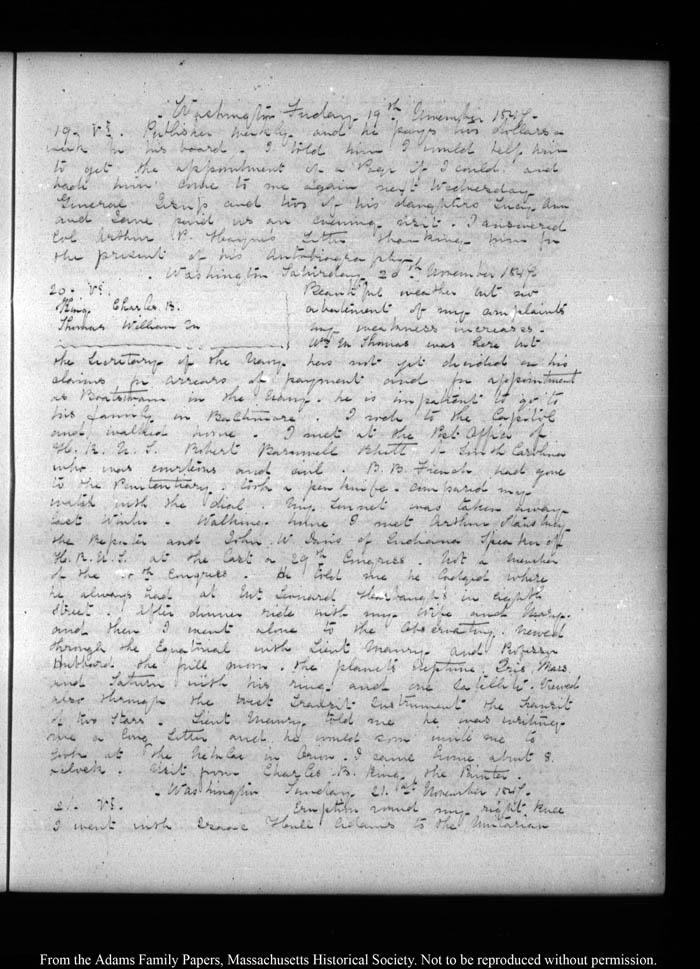 Washington Friday 19th November 1847.
19. VI. Publisher weekly and he pays six dollars a
week for his board. I told him I would help him
to get the appointment of a Page if I could, and
bade him come to me again next Wednesday
General and two of his daughters Ann
and Jane paid us an evening visit. I answered
Col. Arthur P. Hayne's Letter thanking him for
the present of his Autobiography
Washington Saturday 20th November 1847
20. VI. Beautiful weather but no
King Charles B. abatement of my complaints
Thomas William M my weakness increases.
Wm M Thomas was here but
the Secretary of the Navy has not yet decided on his
claims for arrears of payment and for appointment
as Boatswain in the Navy. he is impatient to go to
his family in Baltimore. I rode to the Capitol
and walked home. I met at the Post Office of
H. R. U. S. Robert Barnwell Rhett of South Carolina
who was courteous and civil. B. B. French had gone
to the Penitentiary. took a penknife. compared my
watch with the dial. My was taken away
last Winter. Walking home I met Arthur
the Reporter and John W. Davis of Indiana Speaker of
H. R. U. S. at the last a 29th Congress. Not a member
of the 30th Congress. He told me he lodged where
he always had at Mr Leonard in eighth
Street. After dinner ride with my Wife and Mary.
and then I went alone to the Observatory. Viewed
through the Equatorial with Lieut Maury and Professor
Hubbard the full moon. the planets Neptune, Iris, Mars
and Saturn with his ring and one Satellite. Viewed
also through the great Transit Instrument the Transit
of two Stars. Lieut Maury told me he was writing
me a long Letter and he would soon invite me to
look at the Nebulae in Orion. I came home about 8.
o'clock. Visit from Charles B. King the Painter.
Washington Sunday 21st November 1847.
21. VI. Eruption round my right Knee
I went with Isaac Hull Adams to the Unitarian
From the Adams Family Papers, Massachusetts Historical Society. Not to be reproduced without permission.